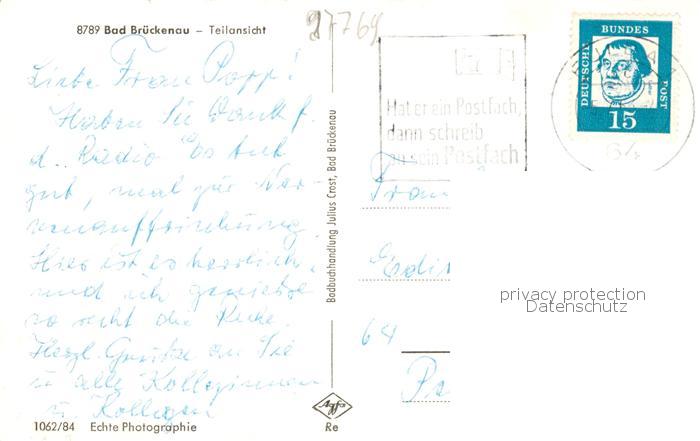 8789 Bad Brückenau – Teilansicht
27769
Liebe Frau Popp!
Haben Sie Dank f.
d. "Radio" Es tut
gut, mal zur Ner-
venauffrischung.
Hier ist es herrlich,
und ich geniesse
so recht die Ruhe.
Herzl. Grüsse an Sie
u. alle Kolleginnen
u. Kollegen
1062/84 Echte Photographie
Badbuchhandlung Julius Crost, Bad Brückenau
Agfa
Re
Hat er ein Postfach,
dann schreib
an sein Postfach
DEUTSCHE
BUNDES
POST
15
Frau
Edit
68
privacy protection
Datenschutz